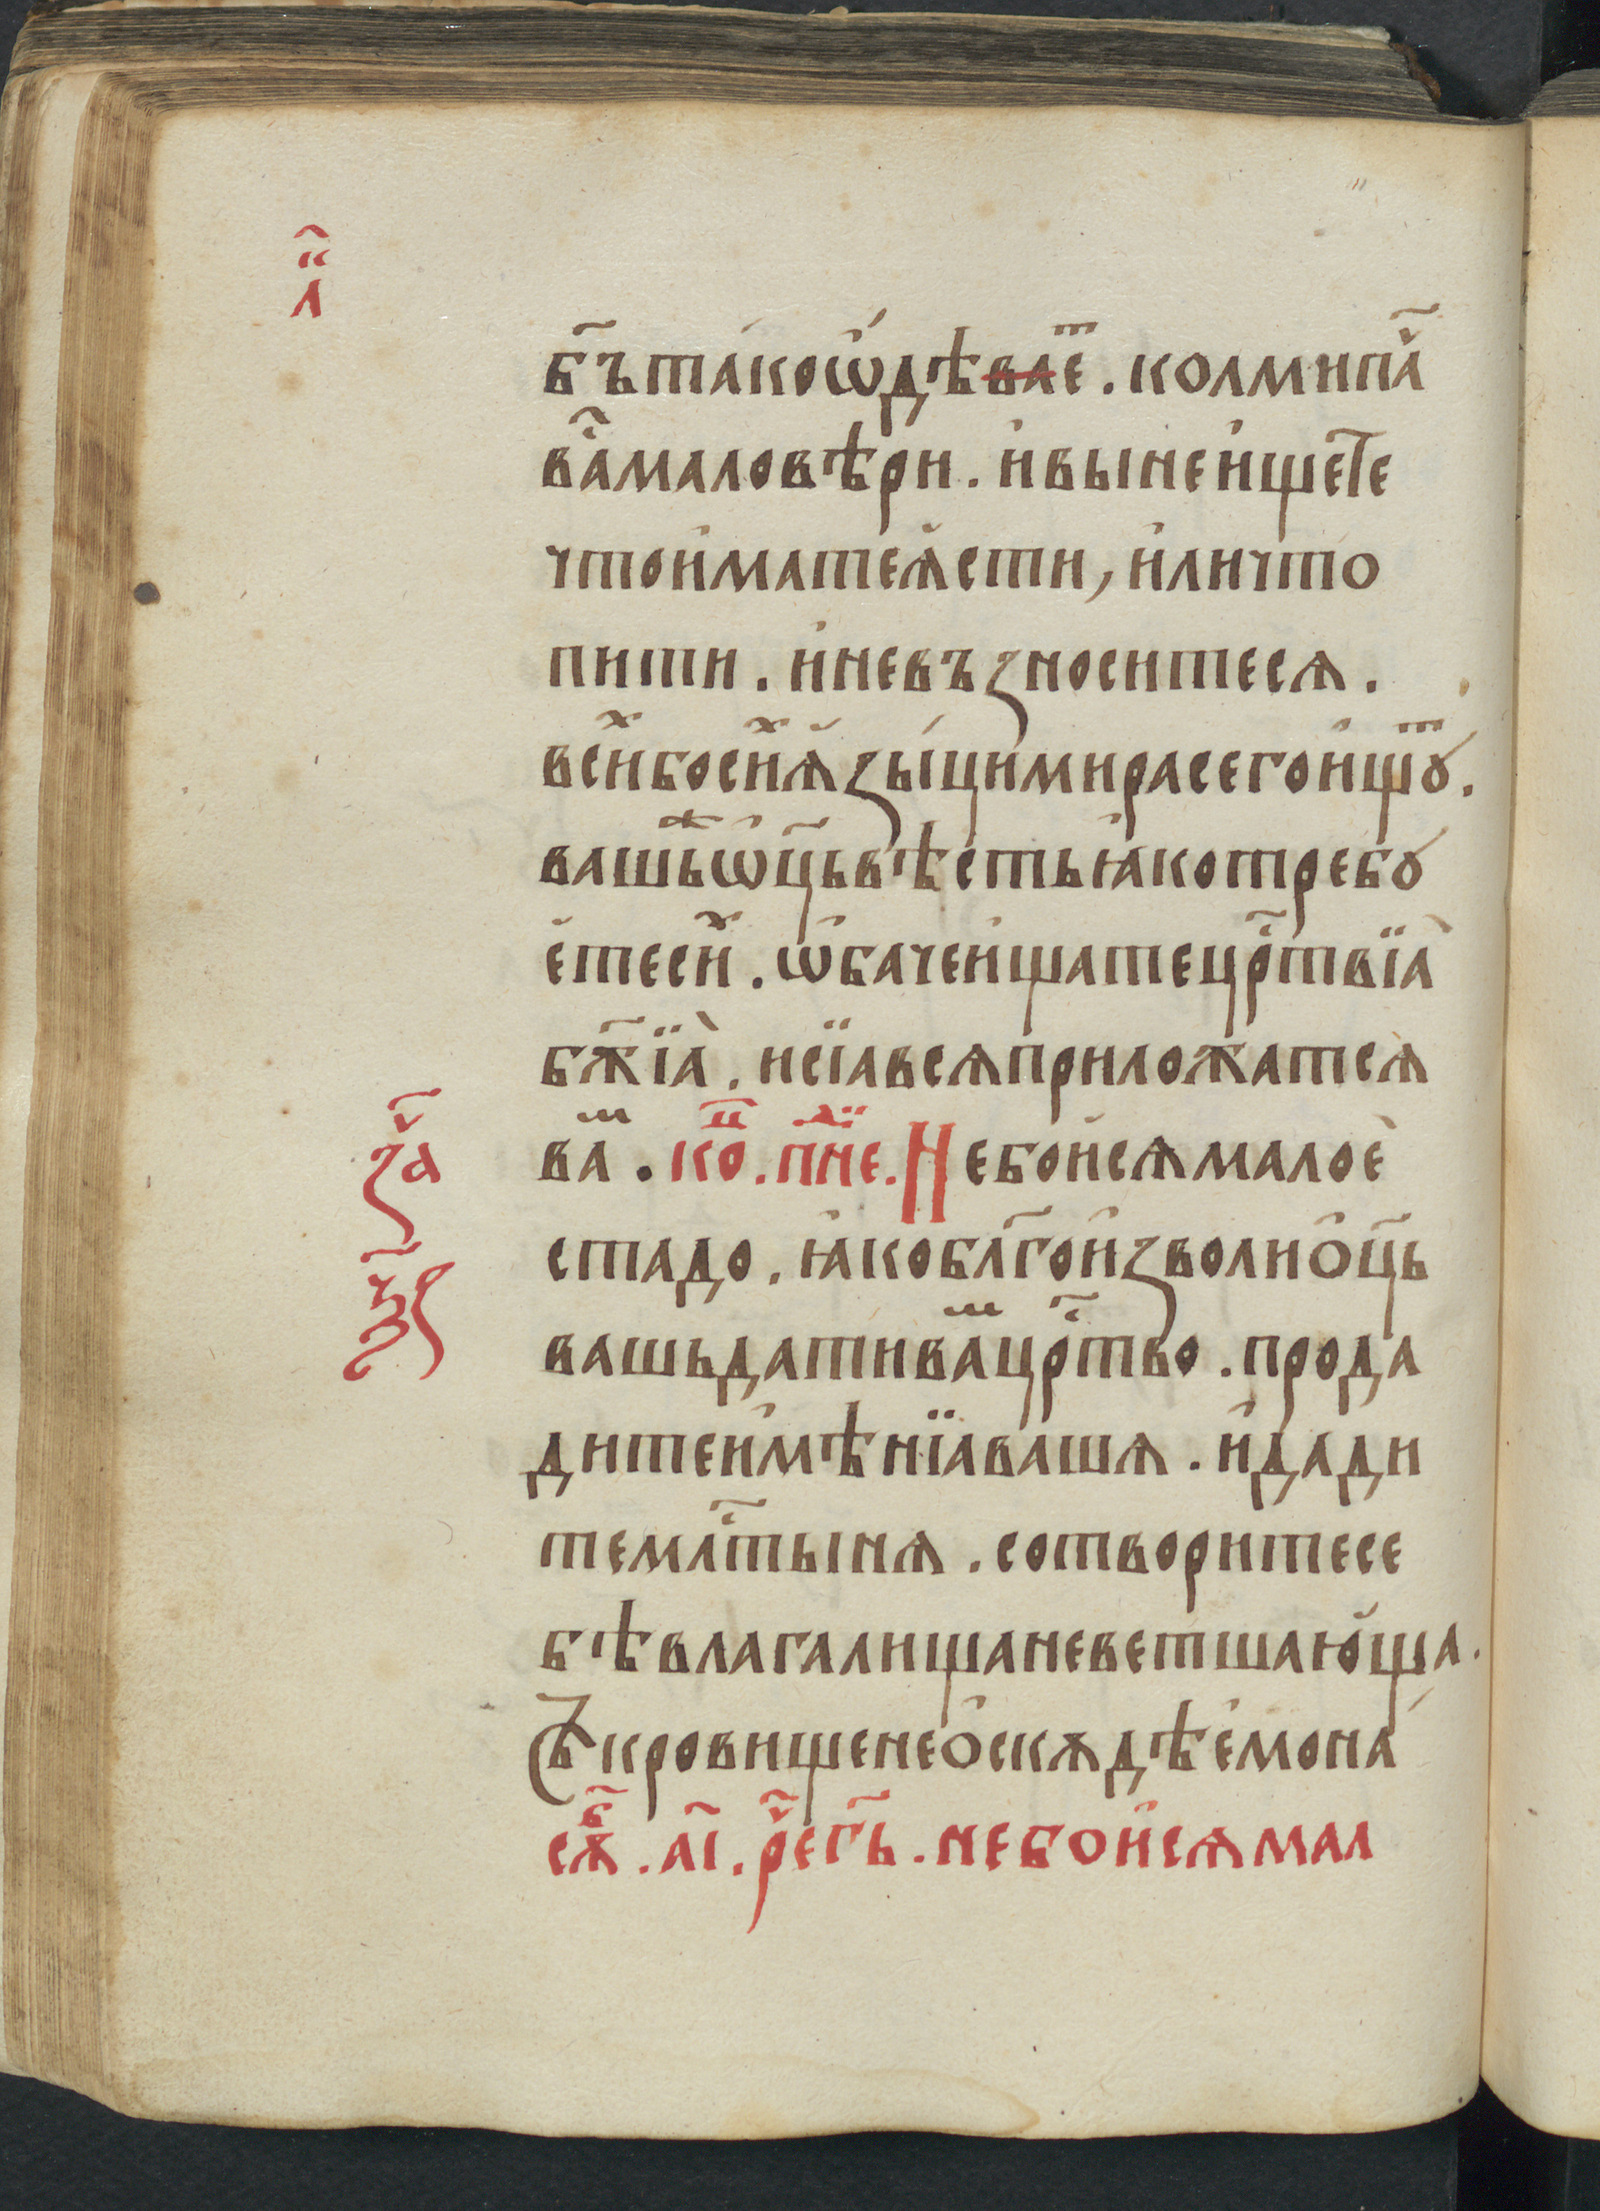 л҃и
бъ҃ та́ко ѡ҆дѣваеⷮ . колми паⷱ҇
ваⷭ҇ маловѣри . и҆ вы не и҆щете
что и҆мате ꙗ҆сти , и҆ли что
пити . и҆ не възноситеся .
всиⷯ бо сиⷯ ꙗ҆зы́цы мира сего и҆щꙋⷮ .
вашь же ѡ҆ц҃ь вѣсть ꙗ҆ко требꙋ
е҆те сиⷯ . ѡ҆баче и҆щате црⷭ҇твїа
бж҃їа . и сїа вся приложатся
ваⷨ . коⷩ҇ . пⷩ҇е . Не бои́ся малое҆
стадо . ꙗ҆ко блг҃оизволи ѻ҆ц҃ь
зⷱ҇а
вашь дати ваⷨ црⷭ҇тво . прода
дите и҆мѣнїа вашя . и҆ дади
те млⷭ҇тыня . сотворите се
бѣ влагалища не ветшаю҆ща .
Съкровище не ѻ҆скѫдѣе҆мо на
сꙋⷠ҇ . а҃і . рⷱ҇е гь҃ . не бои҆ся мал